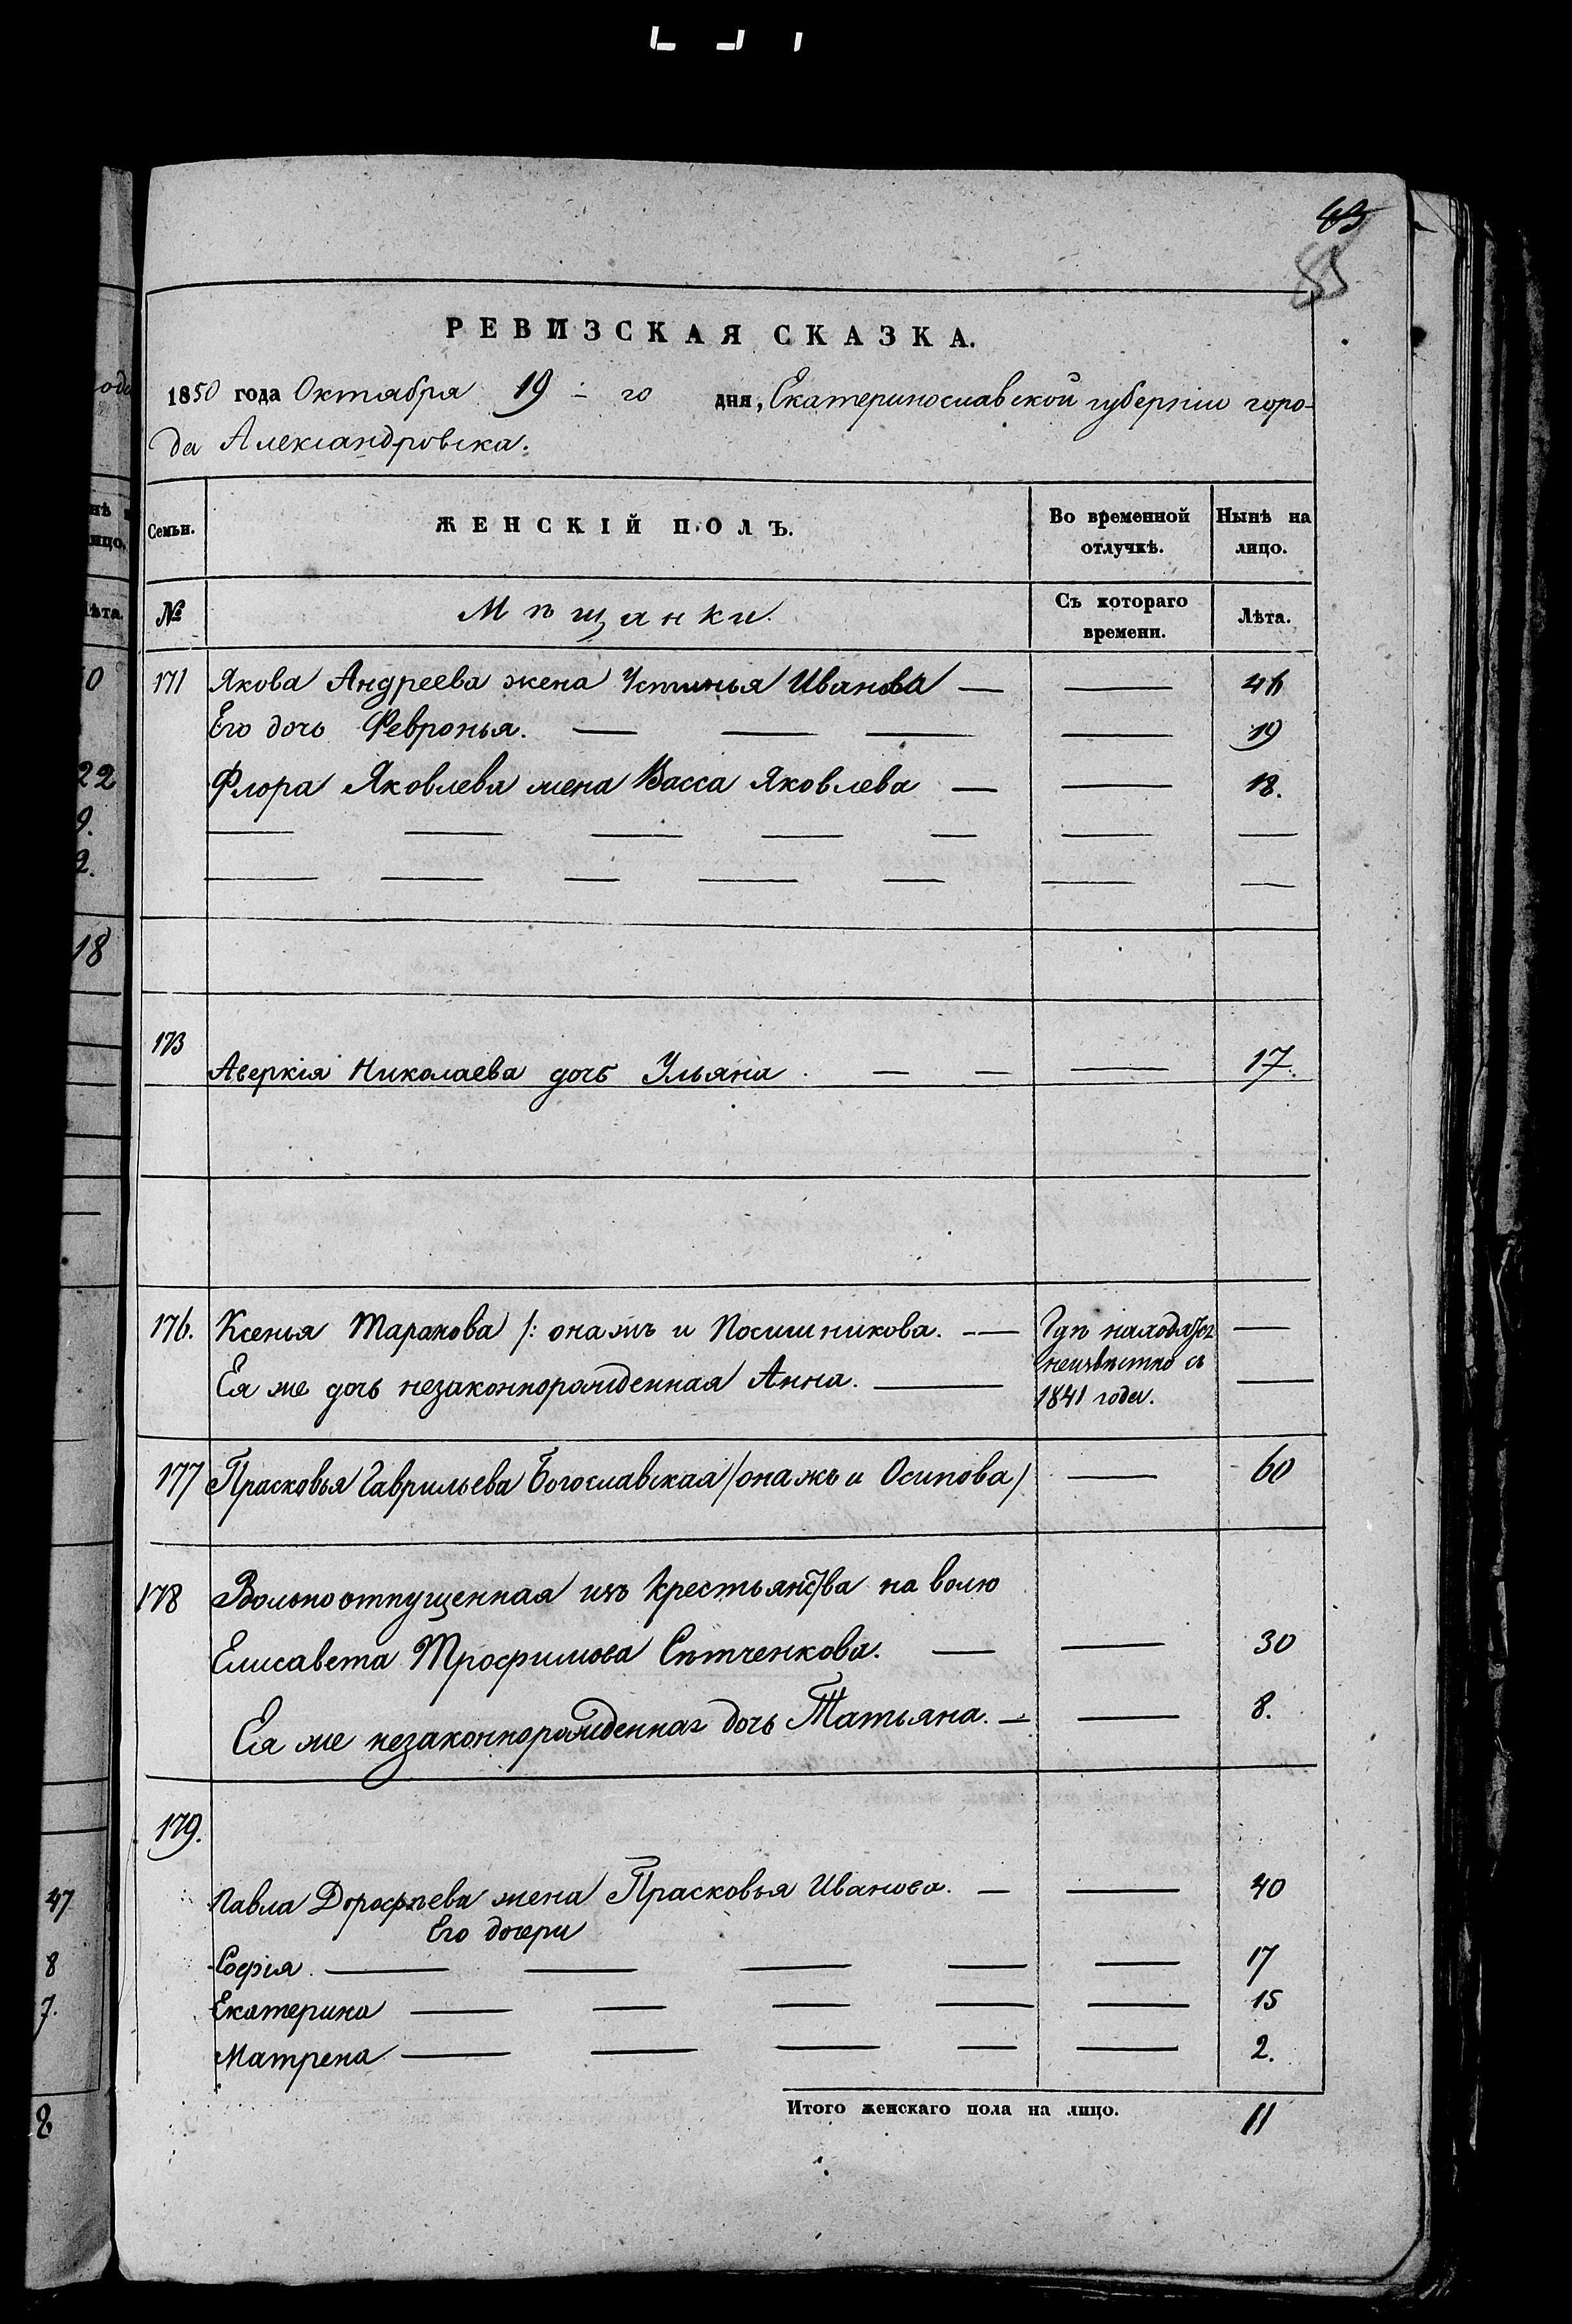 43
85
РЕВИЗСКАЯ СКАЗКА.
1850 года Октября 19-го дня, Екатеринославской губерніи горо-
да Александровска.
Семьи. ЖЕНСКІЙ ПОЛЪ. Во временной отлучкѣ. Нынѣ на лицо.
№ Мѣщанки. Съ котораго времени. Лѣта.
171 Якова Андреева жена Устинья Иванова — —
Его дочь Февронья. — — — — 19
Флора Яковлева жена Васса Яковлева — — 18.
— — — — — — —
— — — — — — —
173
Аверкія Николаева дочь Ульяна. — — — 17.
176. Ксенья Таранова /: она жъ и Посишникова. — Гдѣ находятся —
Ея же дочь незаконнорожденная Анна. — неизвѣстно съ —
1841 года.
177 Прасковья Гаврильева Богославская /она жъ и Осипова/ — 60
178 Вольноотпущенная изъ крестьянства на волю
Елисавета Трофимова Сѣтченкова. — — 30
Ея же незаконнорожденная дочь Татьяна. — — 8.
179.
Павла Дорофѣева жена Прасковья Иванова. — — 40
Его дочери
Софія. — — — — — 17
Екатерина — — — — — 15
Матрена — — — — — 2.
Итого женскаго пола на лицо. 11
0
22
9.
2.
18
47
8
7.
8